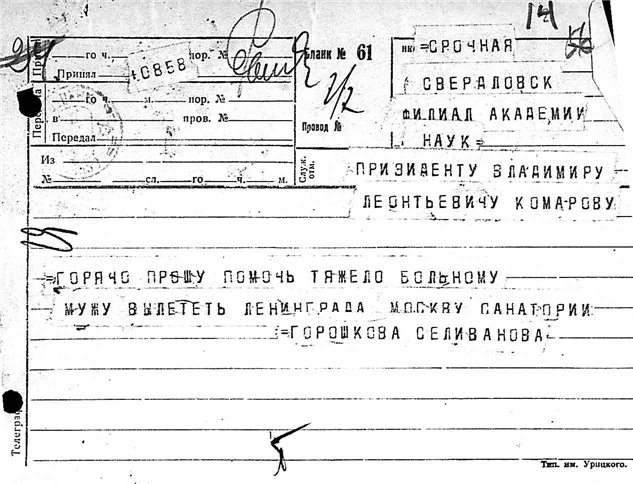 14
го ч. пор. № Бланк № 61 =СРОЧНАЯ
Принял 10858
СВЕРДЛОВСК
го ч. м. пор. №
Передача в пров. № ФИЛИАЛ АКАДЕМИИ
Передал Провод № НАУК=
Из Служ. отм. ПРИЗИДЕНТУ ВЛАДИМИРУ
№ сл. го ч. м.
ЛЕОНТЬЕВИЧУ КОМАРОВУ
=ГОРЯЧО ПРОШУ ПОМОЧЬ ТЯЖЕЛО БОЛЬНОМУ
МУЖУ ВЫЛЕТЕТЬ ЛЕНИНГРАДА МОСКВУ САНАТОРИИ
=ГОРОШКОВА СЕЛИВАНОВА
Телеграф
Тип. им. Урицкого.